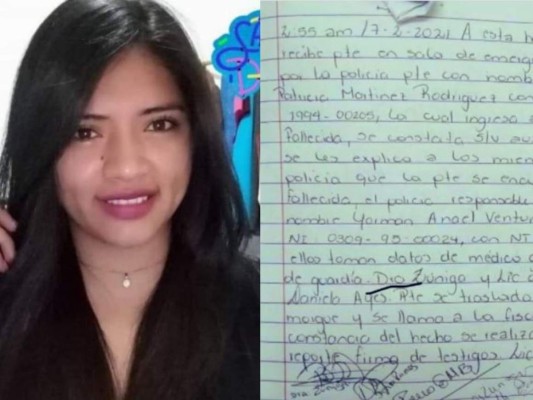 2:55 am /7-2-2021 A esta h
recibe pte en sala de emerg
por la policia pte con nomb
Patricia Martinez Rodriguez con
1994-00205, la cual ingresa
Fallecida, se constata s/v au
se les explica a los miem
policia que la pte se encu
Fallecida, el policia responsable
nombre Yoiman Anael Ventur
NI: 0309-95-00024, con NI
ellos toman datos de médico
de guardia. Dra Zuniga y Lic
Daniela Pte se traslada
morgue y se llama a la fisc
constancia del hecho se realiz
reporte firma de testigos Lic